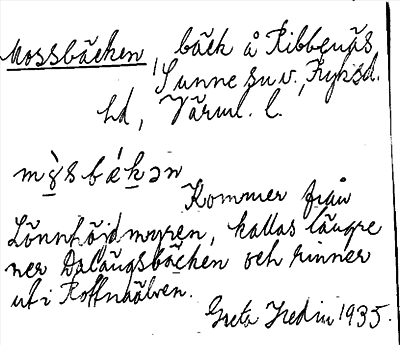 Mossbäcken, bäck å Ribbenäs,
Sunne sn v., Fryksd.
hd, Värml. l.
mỳsbǽkən
Kommer från
Lönnhöjdmyren, kallas längre
ner Dalängsbäcken och rinner
ut i Rottnaälven.
Greta Hedin 1935.